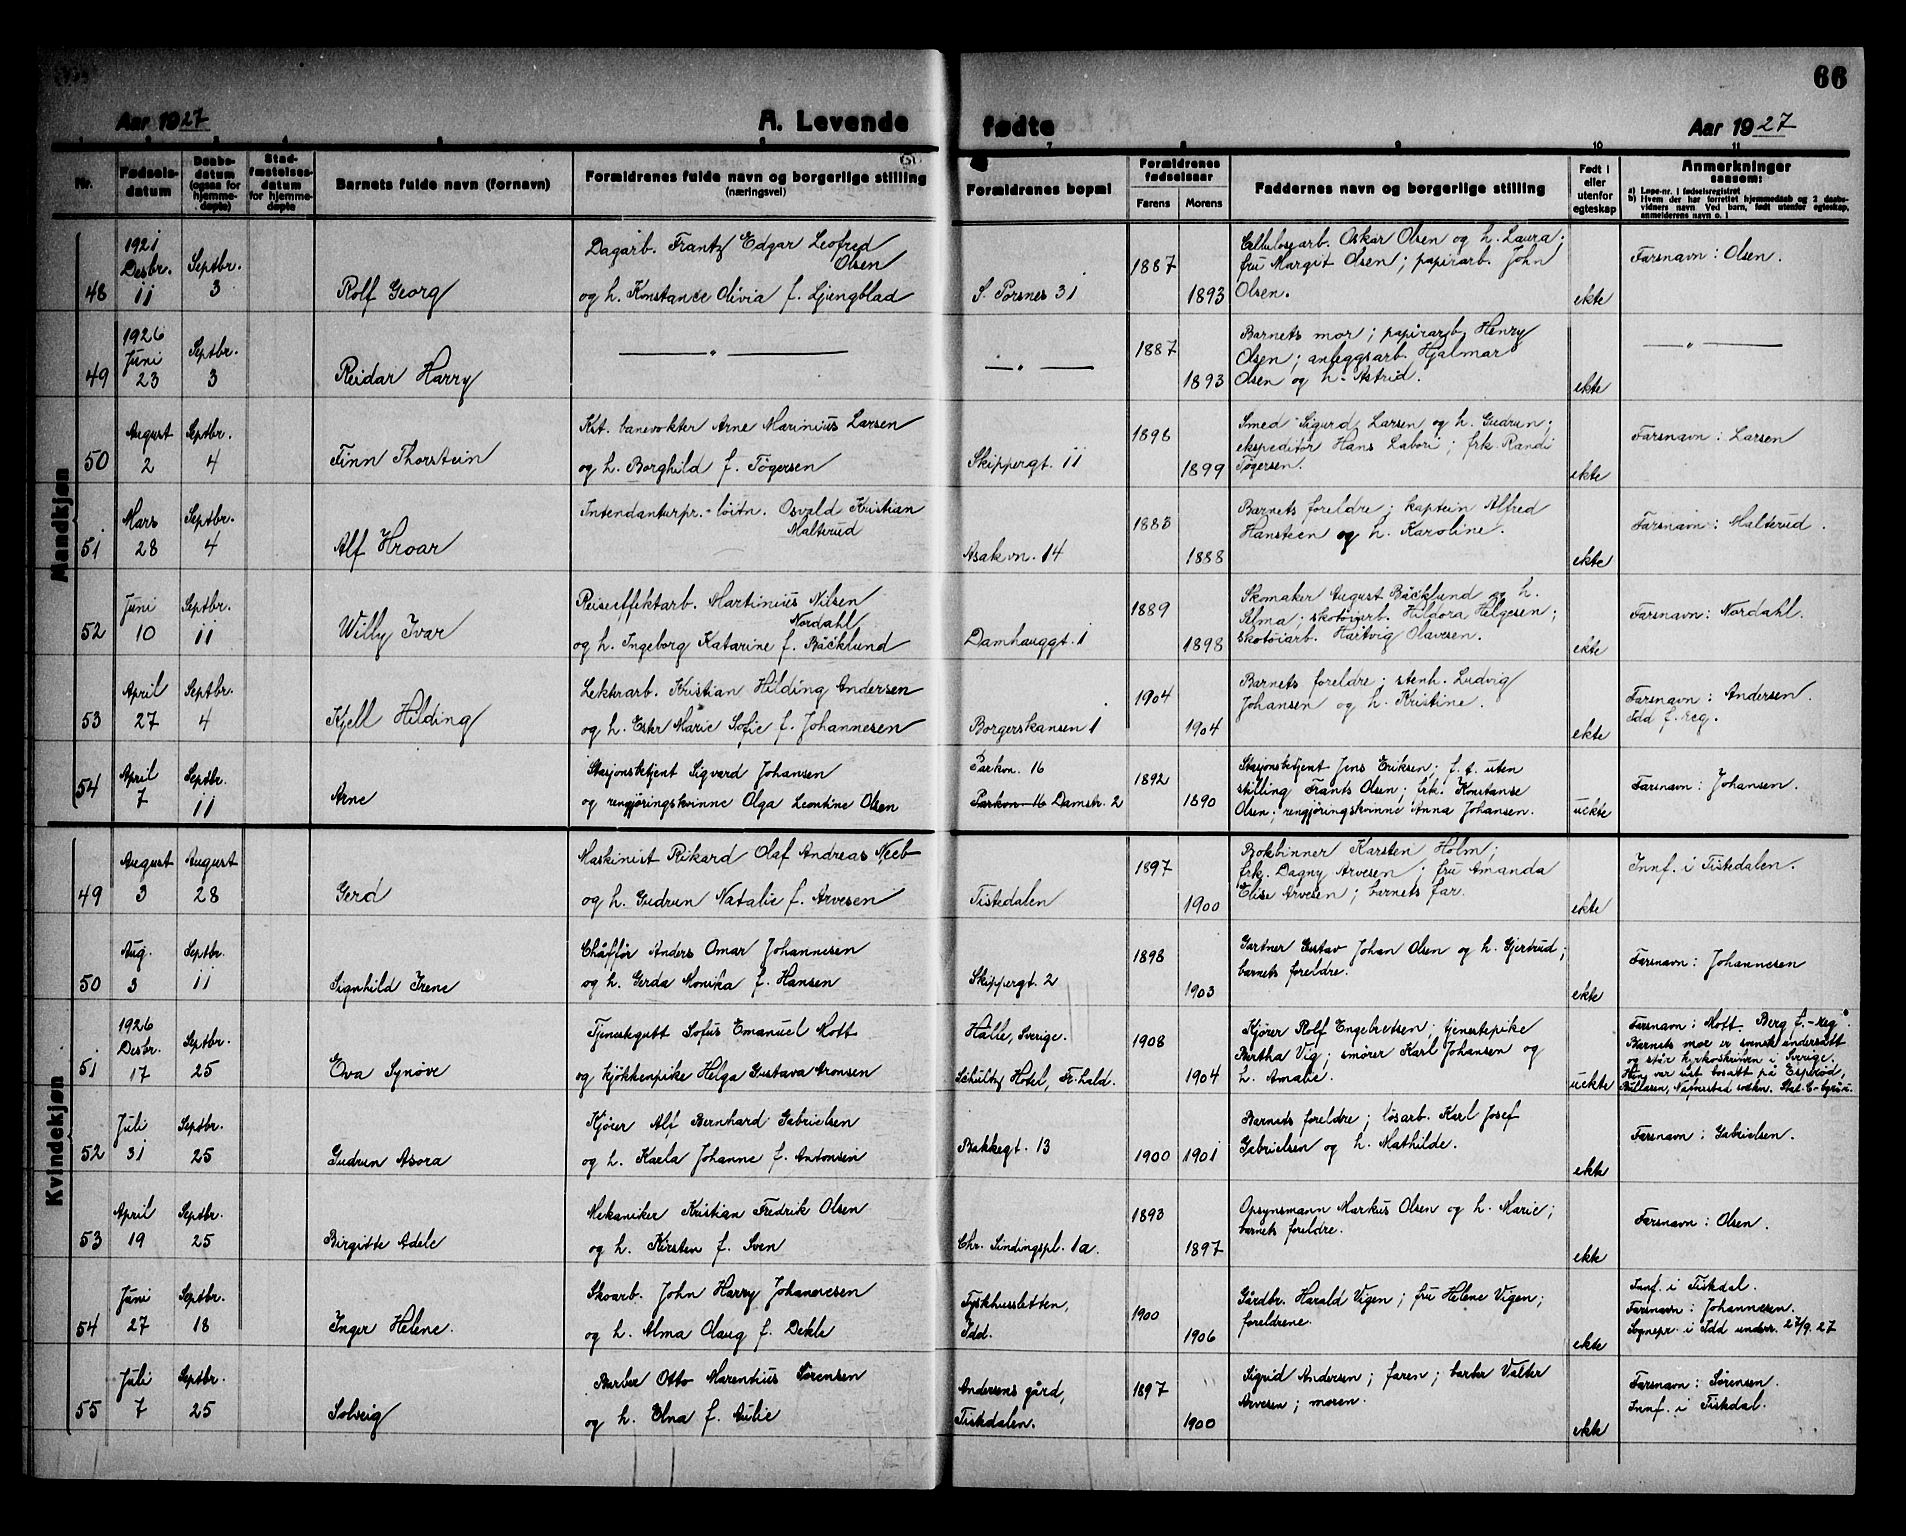 66
Aar 1927
A. Levende
fødte
Aar 1927
Nr.
Fødsels-
datum
Daabs-
datum
(ogsaa for
hjemme-
døpte)
Stad-
fæstelses-
datum
for hjemme-
døpte
Barnets fulde navn (fornavn)
Forældrenes fulde navn og borgerlige stilling
(næringsvei)
Forældrenes bopæl
Forældrenes
fødselsaar
Farens
Morens
Faddernes navn og borgerlige stilling
Født i
eller
utenfor
egteskap
Anmerkninger
saasom:
a) Løpe-nr. i fødselsregistret
b) Hvem der har forrettet hjemmedaab og 2 daabs-
vidners navn Ved barn, født utenfor egteskap,
anmelderens navn o. l
Mandkjøn
48
1921
Desbr.
11
Septbr.
3
Rolf Georg
Dagarb. Frantz Edgar Leofred
Olsen
og h. Konstance Olivia f. Ljungblad
S. Porsnes 31
1887
1893
Cellulosearb. Oskar Olsen og h. Laura;
fru Margit Olsen; papirarb. John
Olsen.
ekte
Farsnavn: Olsen.
49
1926
Juni
23
Septbr.
3
Reidar Harry
— " —
— " —
1887
1893
Barnets mor; papirarb. Henry
Olsen; anleggsarb. Hjalmar
Olsen og h. Astrid.
ekte
— " —
50
August
2
Septbr.
4
Finn Thorstein
Kst. banevokter Arne Marinius Larsen
og h. Borghild f. Tøgersen
Skippergt. 11
1898
1899
Smed Sigurd Larsen og h. Gudrun;
ekspeditør Hans Labori; frk. Randi
Tøgersen.
ekte
Farsnavn: Larsen
51
Mars
28
Septbr.
4
Alf Hroar
Intendanturpr.-løitn. Osvald Kristian
Malterud
Asakvn. 14
1883
1888
Barnets foreldre; kaptein Alfred
Hansteen og h. Karoline.
ekte
Farsnavn: Malterud.
52
Juni
10
Septbr.
11
Willy Ivar
Reiseeffektarb. Martinius Nilsen
Nordahl
og h. Ingeborg Katarine f. Bäcklund
Damhauggt. 1
1889
1898
Skomaker August Bäcklund og h.
Selma; skotøiarb. Hildora Helgesen;
skotøiarb. Hartvig Olavesen.
ekte
Farsnavn: Nordahl.
53
April
27
Septbr.
4
Kjell Hilding
Lekterarb. Kristian Hilding Andersen
og h. Ester Marie Sofie f. Johannesen
Borgerskansen 1
1904
1904
Barnets foreldre; stenh. Ludvig
Johansen og h. Kristine.
ekte
Farsnavn: Andersen.
Idd f. reg.
54
April
7
Septbr.
11
Arne
Stasjonsbetjent Sigvard Johansen
og rengjøringskvinne Olga Leontine Olsen
Parkvn. 16
Parkvn 16 Damstr. 2
1892
1890
Stasjonsbetjent Jens Eriksen; f. t. uten
stilling Frants Olsen; frk. Konstanse
Olsen; rengjøringskvinne Anna Johansen.
uekte
Farsnavn: Johansen.
Kvindekjøn
49
August
3
August
28
Gerd
Maskinist Rikard Olaf Andreas Neeb
og h. Gudrun Natalie f. Arvesen
Tistedalen
1897
1900
Bokbinner Karsten Holm;
frk. Dagny Arvesen; fru Amanda
Elise Arvesen; barnets far.
ekte
Innf. i Tistedalen.
50
Aug.
3
Septbr.
11
Signhild Irene
Chåffør Anders Omar Johannesen
og h. Gerda Monika f. Hansen
Skippergt. 2
1898
1903
Gartner Gustav Johan Olsen og h. Gjertrud;
barnets foreldre.
ekte
Farsnavn: Johannesen
51
1926
Desbr.
17
Septbr.
25
Eva Synøve
Tjenestegutt Sofus Emanuel Mott
og kjøkkenpike Helga Gustava Aronsen
Hälle, Sverige.
Schultz Hotel, Fr.hald.
1908
1904
Kjører Rolf Engebretsen; tjenestepike
Bertha Vig; smører Karl Johansen og
h. Amalie.
uekte
Farsnavn: Mott. Berg f.-reg.
Barnets mor er svensk undersått
og står kyrkoskriven i Sverige.
Hun var sist bosatt på
Bullaren, Naverstad sokn.
52
Juli
31
Septbr.
25
Gudrun Asora
Kjører Alf Bernhard Gabrielsen
og h. Karla Johanne f. Antonsen
Bakkegt. 13
1900
1901
Barnets foreldre; løsarb. Karl Josef
Gabrielsen og h. Mathilde.
ekte
Farsnavn: Gabrielsen.
53
April
19
Septbr.
25
Birgitte Adele
Mekaniker Kristian Fredrik Olsen
og h. Kirsten f. Sven
Chr. Sindingspl. 1a.
1893
1897
Opsynsmann Markus Olsen og h. Marie;
barnets foreldre.
ekte
Farsnavn: Olsen.
54
Juni
27
Septbr.
18
Inger Helene.
Skoarb. John Harry Johannesen
og h. Alma Olaug f. Dekle
Tyskhussletten,
Idd.
1900
1906
Gårdbr. Harald Vigen; fru Helene Vigen;
foreldrene.
ekte
Innf. i Tistedal.
Farsnavn: Johannesen.
Sognepr. i Idd underr. 27/9. 27
55
Juli
7
Septbr.
25
Solveig
Barber Otto Marenthius Sørensen
og h. Elna f. Aulie
Andersens gård,
Tistedalen.
1897
1900
Sigrid Andersen; faren; barber Valter
Arvesen; moren.
ekte
Farsnavn: Sørensen.
Innf. i Tistedal.